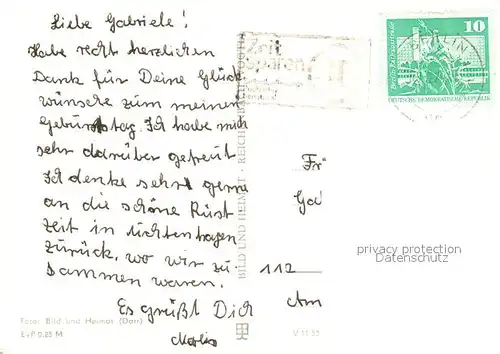 Liebe Gabriele!
Habe recht herzlichen
Dank für Deine Glück
wünsche zum meinen
Geburtstag. Ich habe mich
sehr darüber gefreut
Ich denke sehr gerne
an die schöne Rüst
zeit in Lichtenhagen
zurück, wo wir zu-
sammen waren.
Es grüßt Dich
Foto: Bild und Heimat (Darr)
EVP 0,25 M
BILD UND HEIMAT · REICHENBACH
Zeit
sparen
10
DEUTSCHE DEMOKRATISCHE REPUBLIK
BERLIN
Fr
Ga
112
Am
privacy protection
Datenschutz
V 11 53